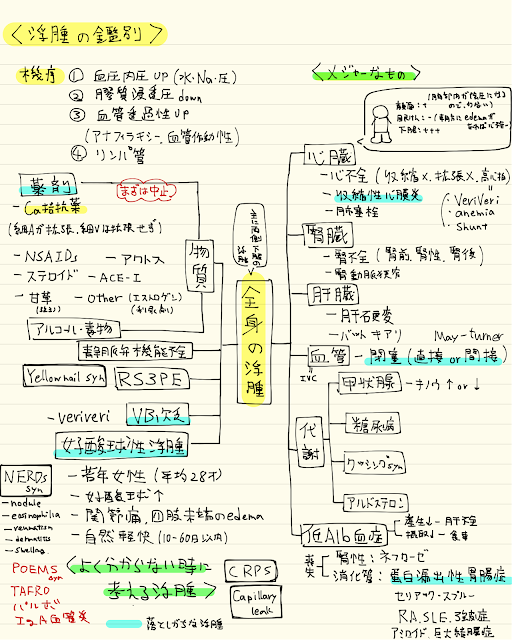 <浮腫の鑑別>
機序 ① 血圧内圧 UP (水・Na・圧)
② 膠質浸透圧 down
③ 血管透過性 UP
(アナフィラキシー、血管作動性)
④ リンパ管
<メジャーなもの>
顔面:+
下腿:+++
薬剤
まずは中止
- Ca拮抗薬
(細Aが拡張、細Vは拡張せず)
- NSAIDs
- アクトス
- ステロイド
- ACE-I
- 甘草
- Other (エストロゲン)
物質
アルコール・毒物
静脈弁機能不全
Yellow nail syn
RS3PE
- veriveri
VB1欠乏
好酸球性浮腫
主に両側下腿の浮腫
全身の浮腫
心臓
- 心不全 (収縮×、拡張×、高心拍)
- 収縮性心膜炎
- 肺塞栓
・VeriVeri
・anemia
・shunt
腎臓
- 腎不全 (腎前、腎性、腎後)
- 腎動脈狭窄
肝臓
- 肝硬変
- バッドキアリ
May-turner
血管 - 閉塞 (直接 or 間接)
IVC
代謝
甲状腺 - キノウ ↑ or ↓
糖尿病
クッシング syn
アルドステロン
低Alb血症
産生↓ - 肝不全
摂取↓ - 食事
喪失
腎性:ネフローゼ
消化管:蛋白漏出性胃腸症
セリアック・スプルー
RA、SLE、強皮症
アミロイド、巨大結腸症
NERDs syn
- nodule
- eosinophilia
- reumatism
- dermatitis
- swelling
- 若年女性 (平均28才)
- 好酸球↑
- 関節痛、四肢末端のedema
- 自然軽快 (10-60日以内)
<よく分からない時に
考える浮腫>
POEMS syn
TAFRO
パルボ
IgA血管炎
CRPS
Capillary leak
落としがちな浮腫